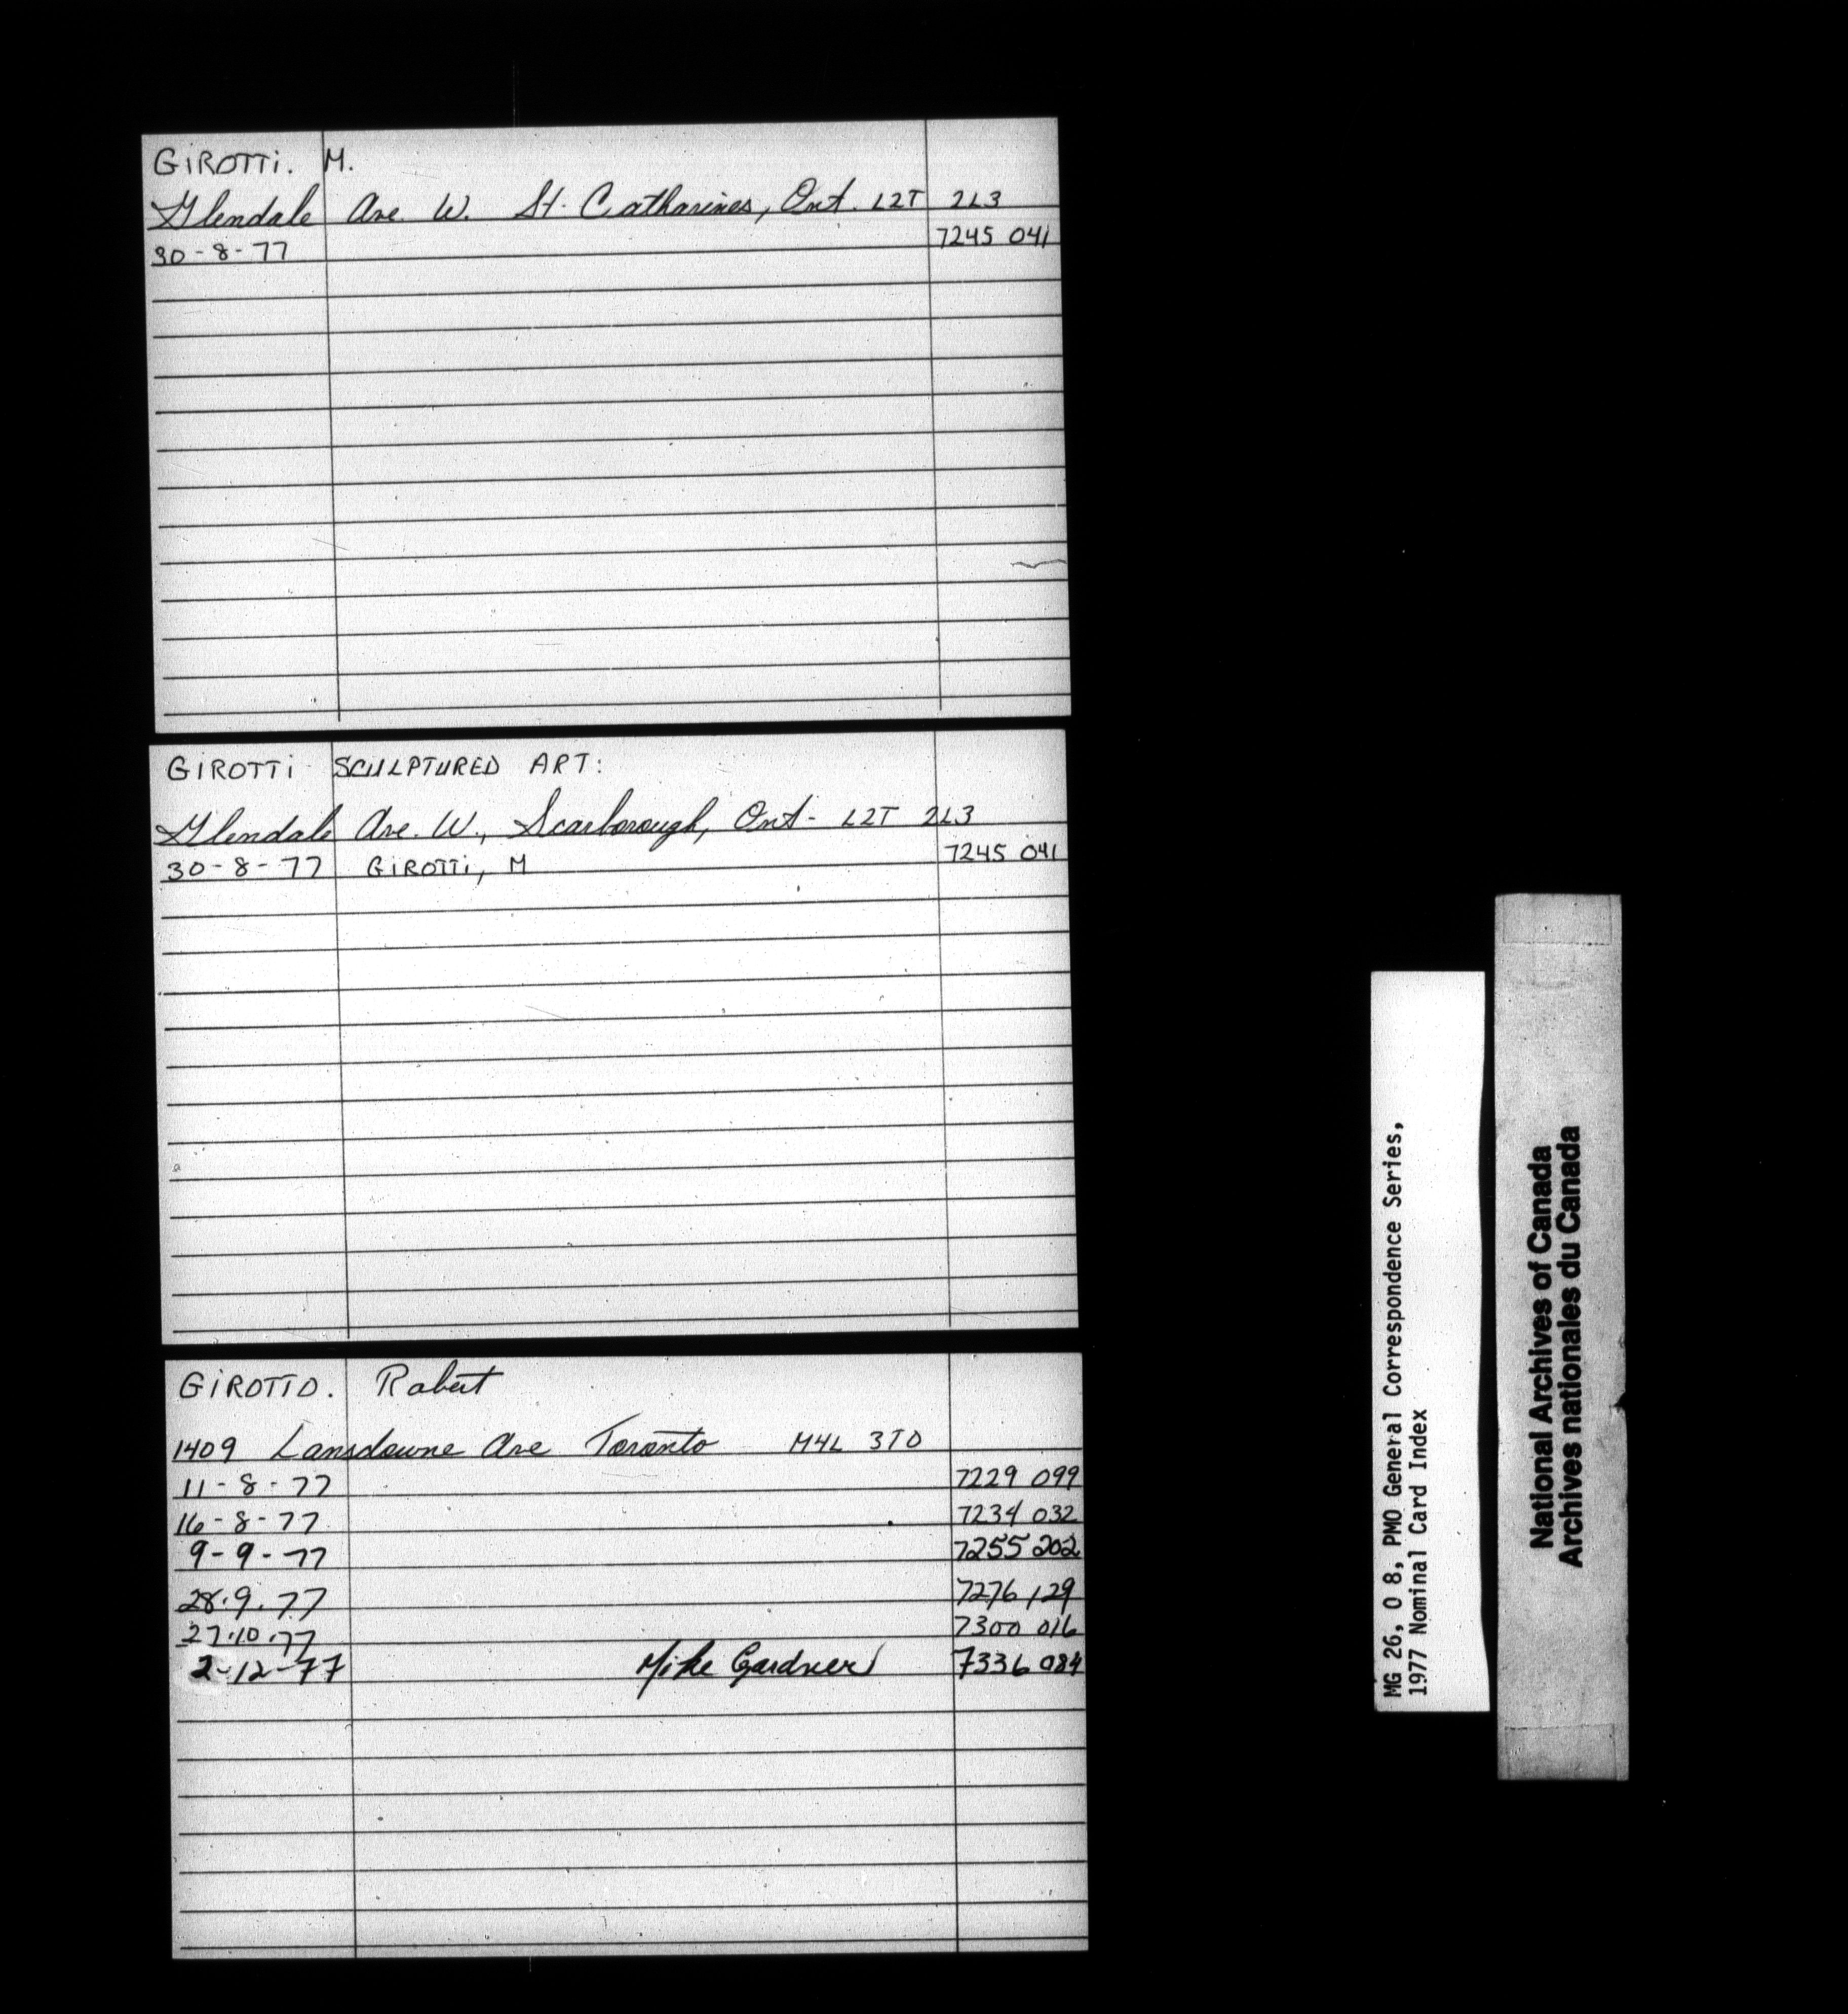 GIROTTI. M.
Glendale Ave. W. St. Catharines, Ont. L2T 2L3
30-8-77 7245 041
GIROTTI SCULPTURED ART:
Glendale Ave. W., Scarborough, Ont- L2T 2L3
30-8-77 GIROTTI, M 7245 041
GIROTTO. Robert
1409 Lansdowne Ave Toronto M4L 3T0
11-8-77 7229 099
16-8-77 7234 032
9-9-77 7255 202
28.9.77 7276 129
27.10.77 7300 016
2-12-77 Mike Gardner 7336 084
MG 26, O 8, PMO General Correspondence Series,
1977 Nominal Card Index
National Archives of Canada
Archives nationales du Canada